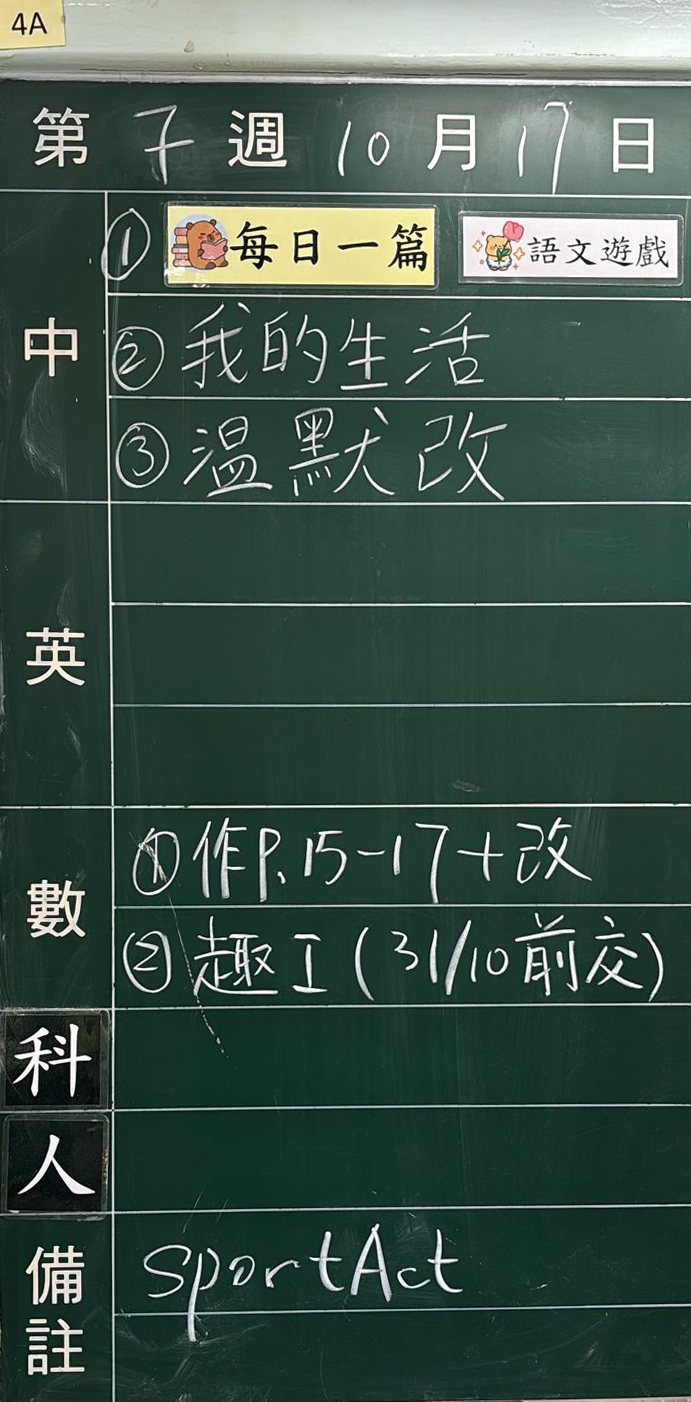 4A
第 7 週 10 月 17 日
中
① 每日一篇 語文遊戲
② 我的生活
③ 温默改
英
數
① 作P.15-17+改
② 趣工(31/10前交)
科
人
備註
SportAct